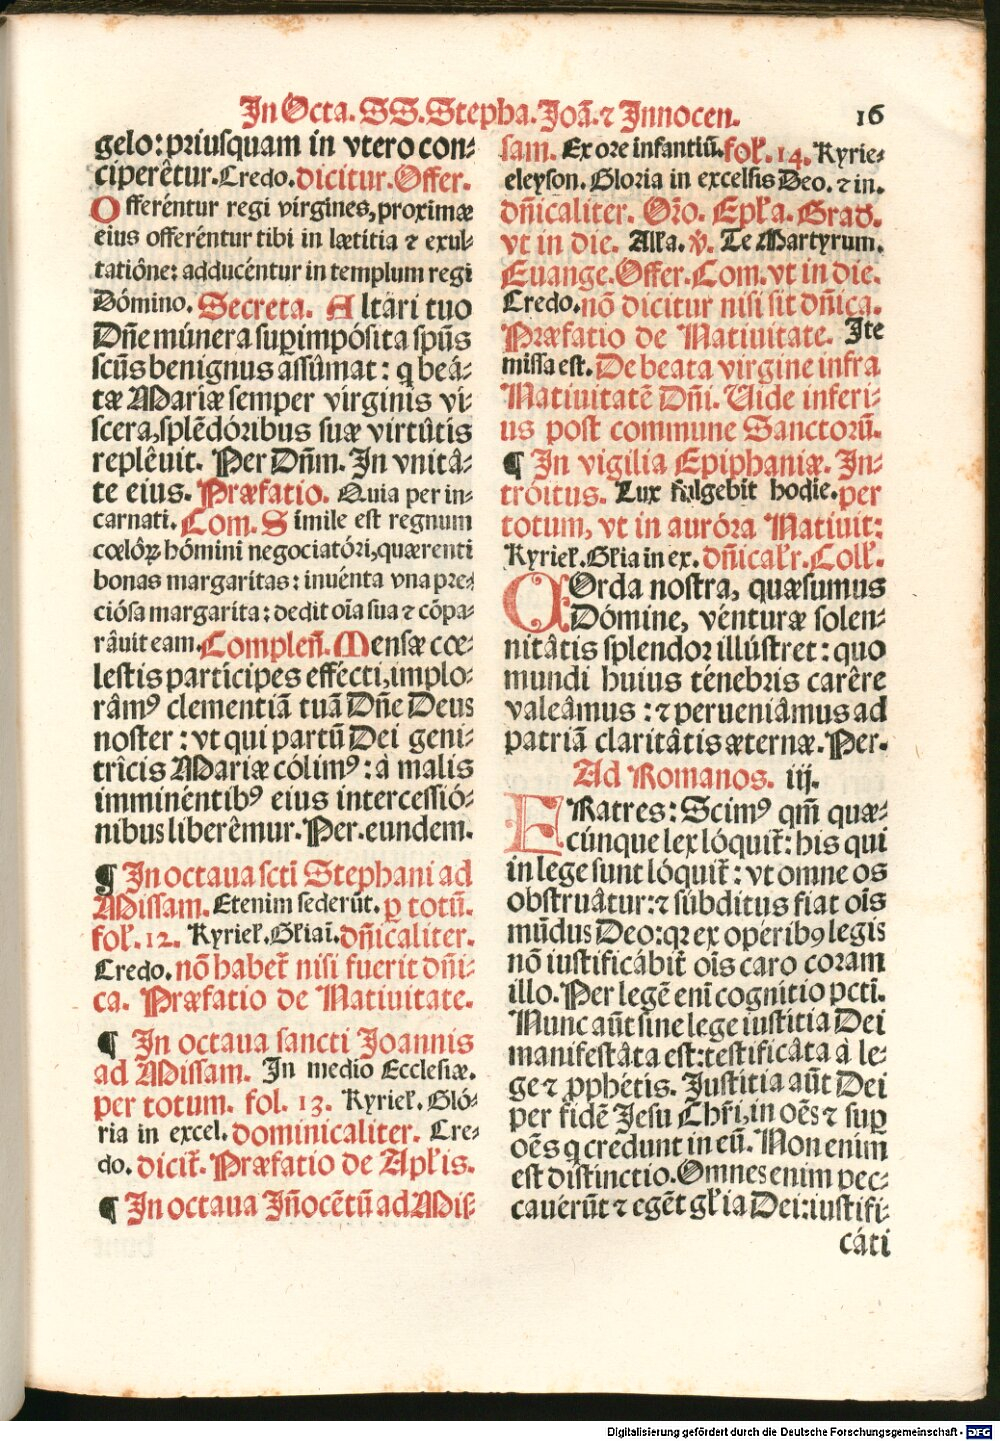 In Octa. SS. Stepha. Joã. ⁊ Innocen. 16
gelo: priusquam in vtero con-
ciperêtur. Credo. dicitur. Offer.
Offeréntur regi virgines, proximæ
eius offeréntur tibi in lætitia ⁊ exul-
tatiône: adducéntur in templum regi
Dómino. Secreta. Altári tuo
Dñe múnera supimpósita spũs
scũs benignus assûmat: q beá-
tæ Mariæ semper virginis vi-
scera, splẽdóribus suæ virtûtis
replêuit. Per Dñm. In vnitâ-
te eius. Præfatio. Quia per in-
carnati. Com. Simile est regnum
cœlôꝝ hómini negociatóri, quærenti
bonas margaritas: inuénta vna pre-
ciósa margarita: dedit oĩa sua ⁊ cõpa-
râuit eam. Compleñ. Mensæ cœ-
lestis partícipes effécti, implo-
râmꝰ clementiã tuã Dñe Deus
noster: vt qui partũ Dei geni-
trîcis Mariæ cólimꝰ: à malis
imminéntibꝰ eius intercessió-
nibus liberêmur. Per. eundem.
¶ In octaua scti Stephani ad
Missam. Etenim sederũt. ꝑ totũ.
fol. 12. Kyriel. Glïai. dñicaliter.
Credo. nõ habet nisi fuerit dñi-
ca. Præfatio de Natiuitate.
¶ In octaua sancti Joannis
ad Missam. In medio Ecclesiæ.
per totum. fol. 13. Kyriel. Gló-
ria in excel. dominicaliter. Cre-
do. dicit. Præfatio de Aplis.
¶ In octaua Iñocẽtũ ad Mis-
sam. Ex ore infantiũ. fol. 14. Kyrie-
eleyson. Gloria in excelsis Deo. ⁊ in.
dñicaliter. Oro. Epla. Grad.
vt in die. Alla. ℣. Te Martyrum.
Euange. Offer. Com. vt in die.
Credo. nõ dicitur nisi sit dñica.
Præfatio de Natiuitate. Ite
missa est. De beata virgine infra
Natiuitatẽ Dñi. Uide inferi-
us post commune Sanctorũ.
¶ In vigilia Epiphaniæ. In-
tróitus. Lux fulgebit hodie. per
totum, vt in auróra Natiuit:
Kyriel. Glia in ex. dñicalr. Coll.
COrda nostra, quæsumus
Dómine, ventúræ solen-
nitâtis splendor illústret: quo
mundi huius ténebris carêre
valeâmus: ⁊ perueniâmus ad
patriã claritâtis æternæ. Per.
Ad Romanos. iij.
FRatres: Scimꝰ qm̃ quæ-
cúnque lex lóquit: his qui
in lege sunt lóquit: vt omne os
obstruâtur: ⁊ súbditus fiat oĩs
mũdus Deo: qꝛ ex operibꝰ legis
nõ iustificábit oĩs caro coram
illo. Per legẽ eni cognitio pcti.
Nunc aũt sine lege iustitia Dei
manifestâta est: testificâta à le-
ge ⁊ ꝓphétis. Justitia aũt Dei
per fidẽ Jesu Chri, in oẽs ⁊ sup
oẽs q credunt in eũ. Non enim
est distinctio. Omnes enim pec-
cauérũt ⁊ egẽt glia Dei: iustifi-
cáti
Digitalisierung gefördert durch die Deutsche Forschungsgemeinschaft - DFG